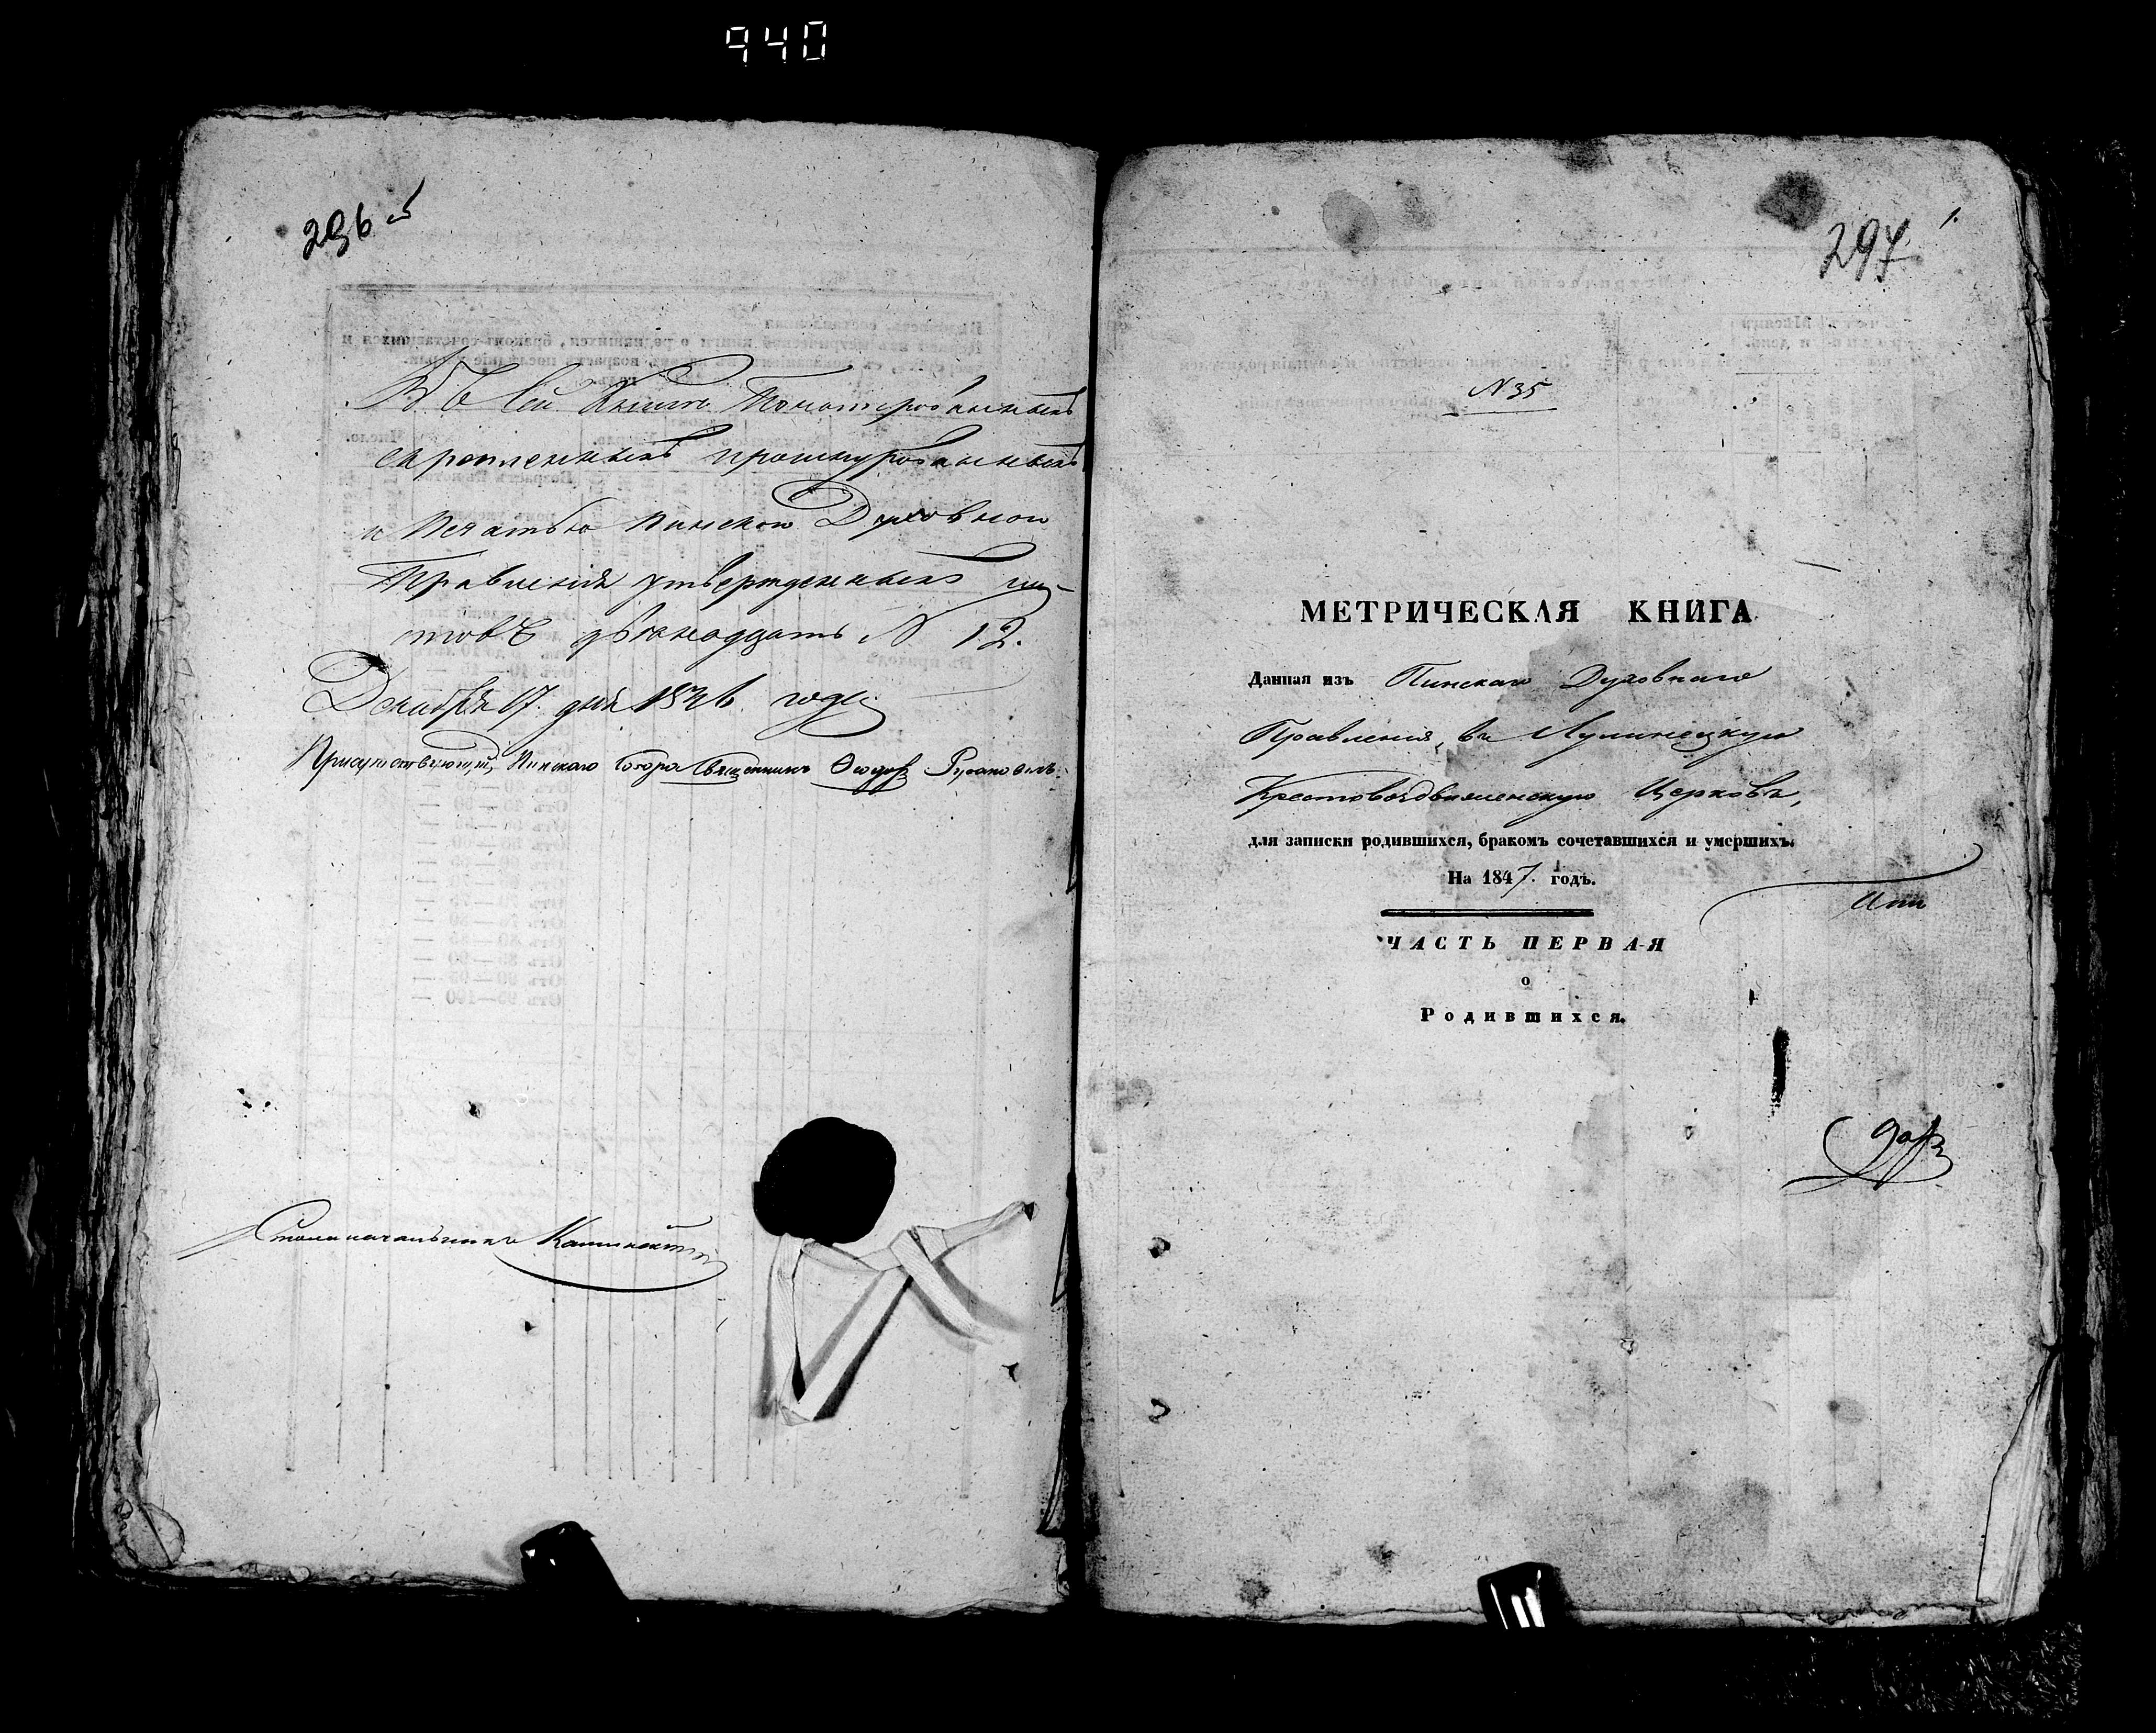 940
296 об
Въ сей Книге Пономерованныхъ
скрепленныхъ прошнурованныхъ
и Печатью Пинскои Духовнои
Правленія утвержденныхъ лис-
товъ двенадцать N 12.
Декабря 17. дня 1846. года
Присутствующій Пинскаго Собора Священникъ Феодоръ
Столоначальникъ
297 1.
N 35
МЕТРИЧЕСКАЯ КНИГА
Данная изъ Пинскаго Духовнаго
Правленія, въ Лунинецкую
Крестовоздвиженскую Церковь,
для записки родившихся, бракомъ сочетавшихся и умершихъ.
На 1847. годъ.
ЧАСТЬ ПЕРВАЯ
о
Родившихся.